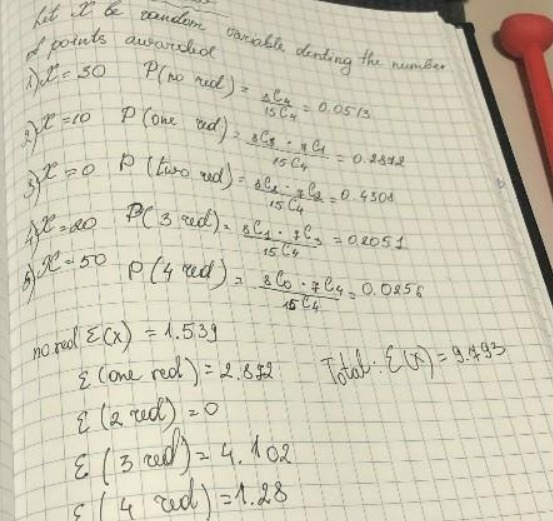 Let X be random variable denting the number
of points awarded
1) X = 30 P(no red) = 8C4 / 15C4 = 0.0513
2) X = 10 P(one red) = 8C3 · 7C1 / 15C4 = 0.2872
3) X = 0 P(two red) = 8C2 · 7C2 / 15C4 = 0.4308
4) X = 20 P(3 red) = 8C1 · 7C3 / 15C4 = 0.2051
5) X = 50 P(4 red) = 8C0 · 7C4 / 15C4 = 0.0256
no red E(x) = 1.539
E(one red) = 2.872 Total: E(x) = 9.793
E(2 red) = 0
E(3 red) = 4.102
E(4 red) = 1.28